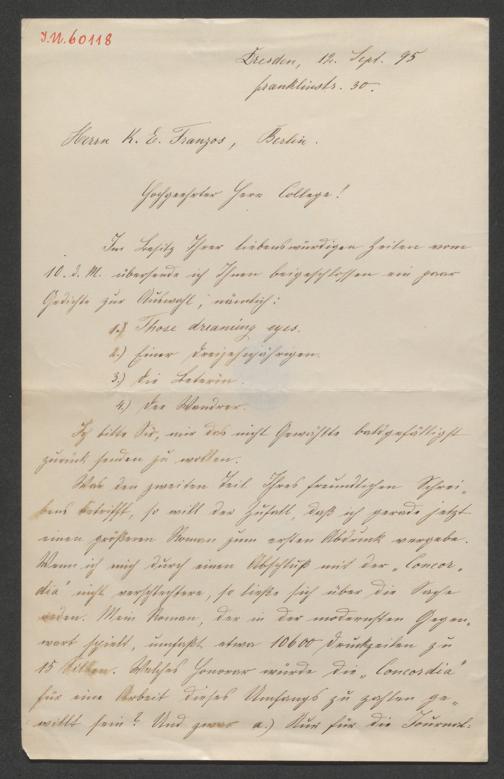 I.N. 60118
Dresden, 12. Sept. 95
Franklinstr. 30.
Herrn K. E. Franzos, Berlin.
Hochgeehrter Herr College!
Im Besitz Ihrer liebenswürdigen Zeilen vom
10. d. M. übersende ich Ihnen beigeschlossen ein paar
Gedichte zur Auswahl, nämlich:
1.) Those dreaming eyes.
2.) Einer Dreizehnjährigen.
3.) Die Beterin.
4.) Der Wandrer.
Ich bitte Sie, mir das nicht Gewählte baldgefälligst
zurück senden zu wollen.
Was den zweiten Teil Ihres freundlichen Schrei-
bens betrifft, so will der Zufall, daß ich gerade jetzt
einen größeren Roman zum ersten Abdruck vergebe.
Wenn ich mich durch einen Abschluß mit der „Concor-
dia" nicht verschlechtere, so ließe sich über die Sache
reden. Mein Roman, der in der modernsten Gegen-
wart spielt, umfaßt etwa 10600 Druckzeilen zu
15 Silben. Welches Honorar würde die „Concordia"
für eine Arbeit dieses Umfangs zu zahlen ge-
willt sein? Und zwar a.) Nur für die Journal-